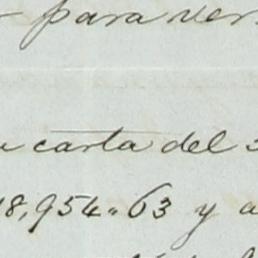 para ver
carta del
18,954"63 y a